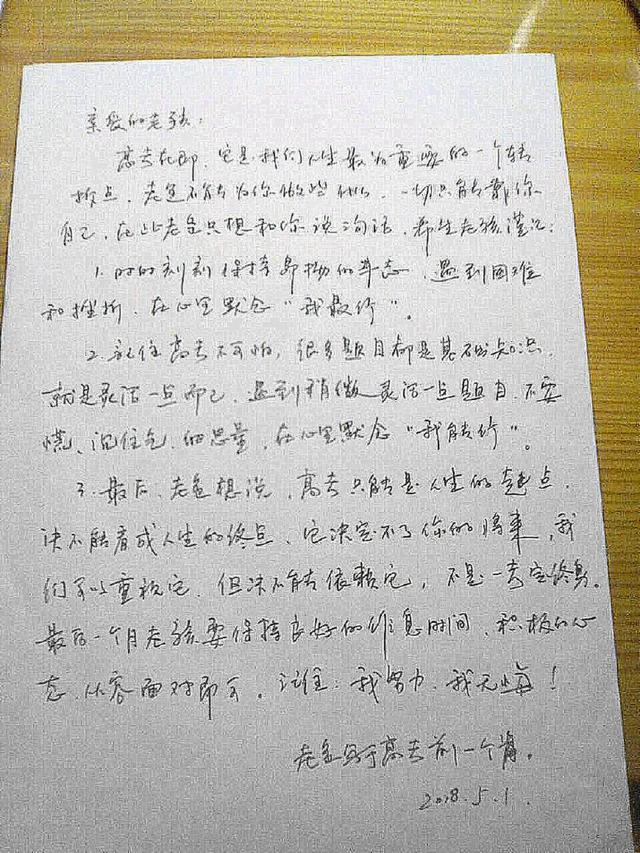 亲爱的老孩：
高考在即，它是我们人生最为重要的一个转
折点，老爸不能为你做些什么，一切只能靠你
自己，在此老爸只想和你说三句话，希望老孩谨记：
1. 时时刻刻保持昂扬的斗志，遇到困难
和挫折，在心里默念“我最行”。
2. 记住高考不可怕，很多题目都是基础知识，
就是灵活一点而已，遇到稍微灵活一点题目，不要
慌、沉住气、细思量，在心里默念“我能行”。
3. 最后，老爸想说，高考只能是人生的起点，
决不能看成人生的终点，它决定不了你的将来，我
们可以重视它，但决不能依赖它，不是一考定终身。
最后一个月老孩要保持良好的作息时间，积极的心
态，从容面对即可。记住：我努力，我无悔！
老爸写于高考前一个月。
2018.5.1.